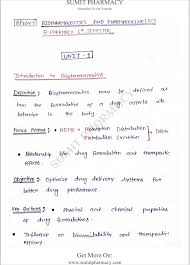 SUMIT PHARMACY
BP604T BIOPHARMACEUTICS AND PHARMACOKINETICS
B PHARMACY 6th SEMESTER
UNIT - 1
Introduction to Biopharmaceutics
Definition : Biopharmaceutics may be defined as
how the formulation of a drug affects its
behavior in the body.
Focus Areas : • ADME → Absorption Distribution
Distribution Excretion
• Relationship drug formulation and therapeutic
effects.
Objective : Optimize drug delivery systems for
better drug performance.
Key Factors : • Physical and chemical properties
of drug formulations.
• Influence on bioavailability and therapeutic
efficacy.
SUMIT PHARMACY
Get More On:
www.sumitpharmacy.com